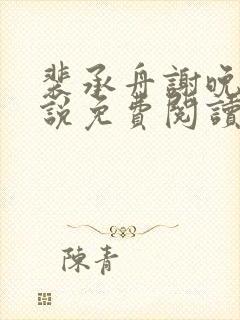 裴承舟謝晚
說免費閱讀
陳青